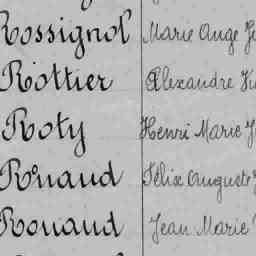 Rossignol Marie Ange
Rottier Alexandre
Roty Henri Marie
Rouaud Félix Auguste
Rouaud Jean Marie